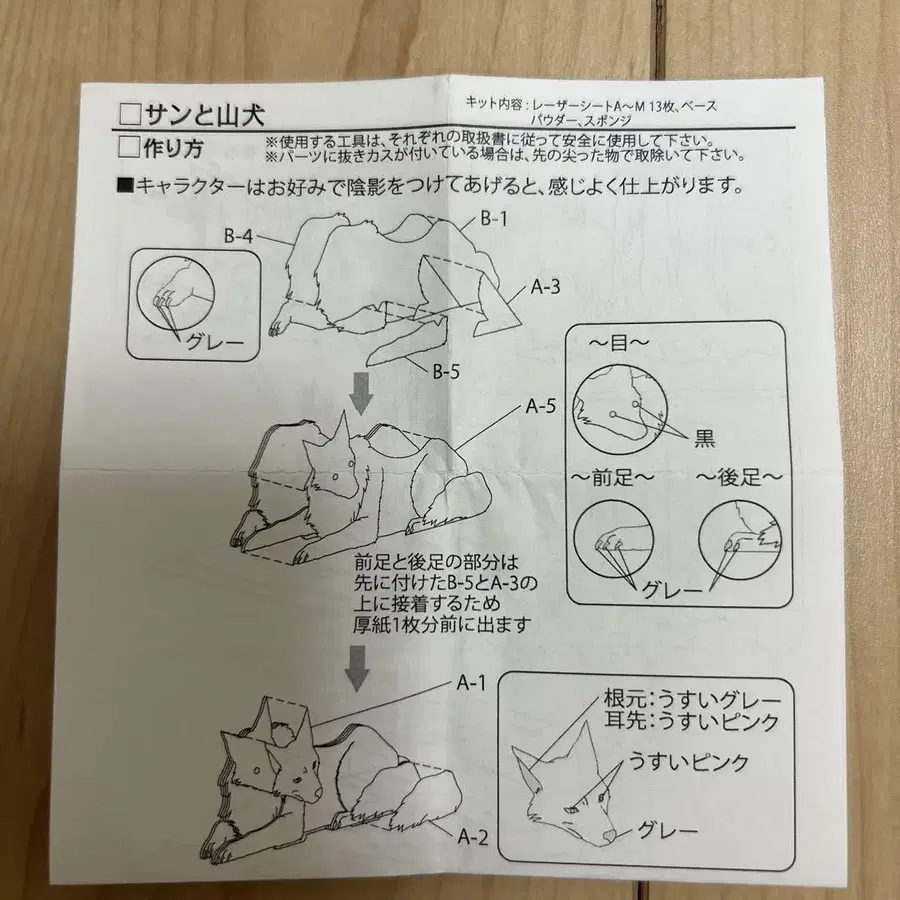 □サンと山犬
キット内容：レーザーシートA～M 13枚、ベース
パウダー、スポンジ
□作り方
※使用する工具は、それぞれの取扱書に従って安全に使用して下さい。
※パーツに抜きカスが付いている場合は、先の尖った物で取除いて下さい。
■キャラクターはお好みで陰影をつけてあげると、感じよく仕上がります。
B-4
B-1
A-3
グレー
B-5
A-5
～目～
黒
～前足～
～後足～
グレー
前足と後足の部分は
先に付けたB-5とA-3の
上に接着するため
厚紙1枚分前に出ます
A-1
A-2
根元：うすいグレー
耳先：うすいピンク
うすいピンク
グレー